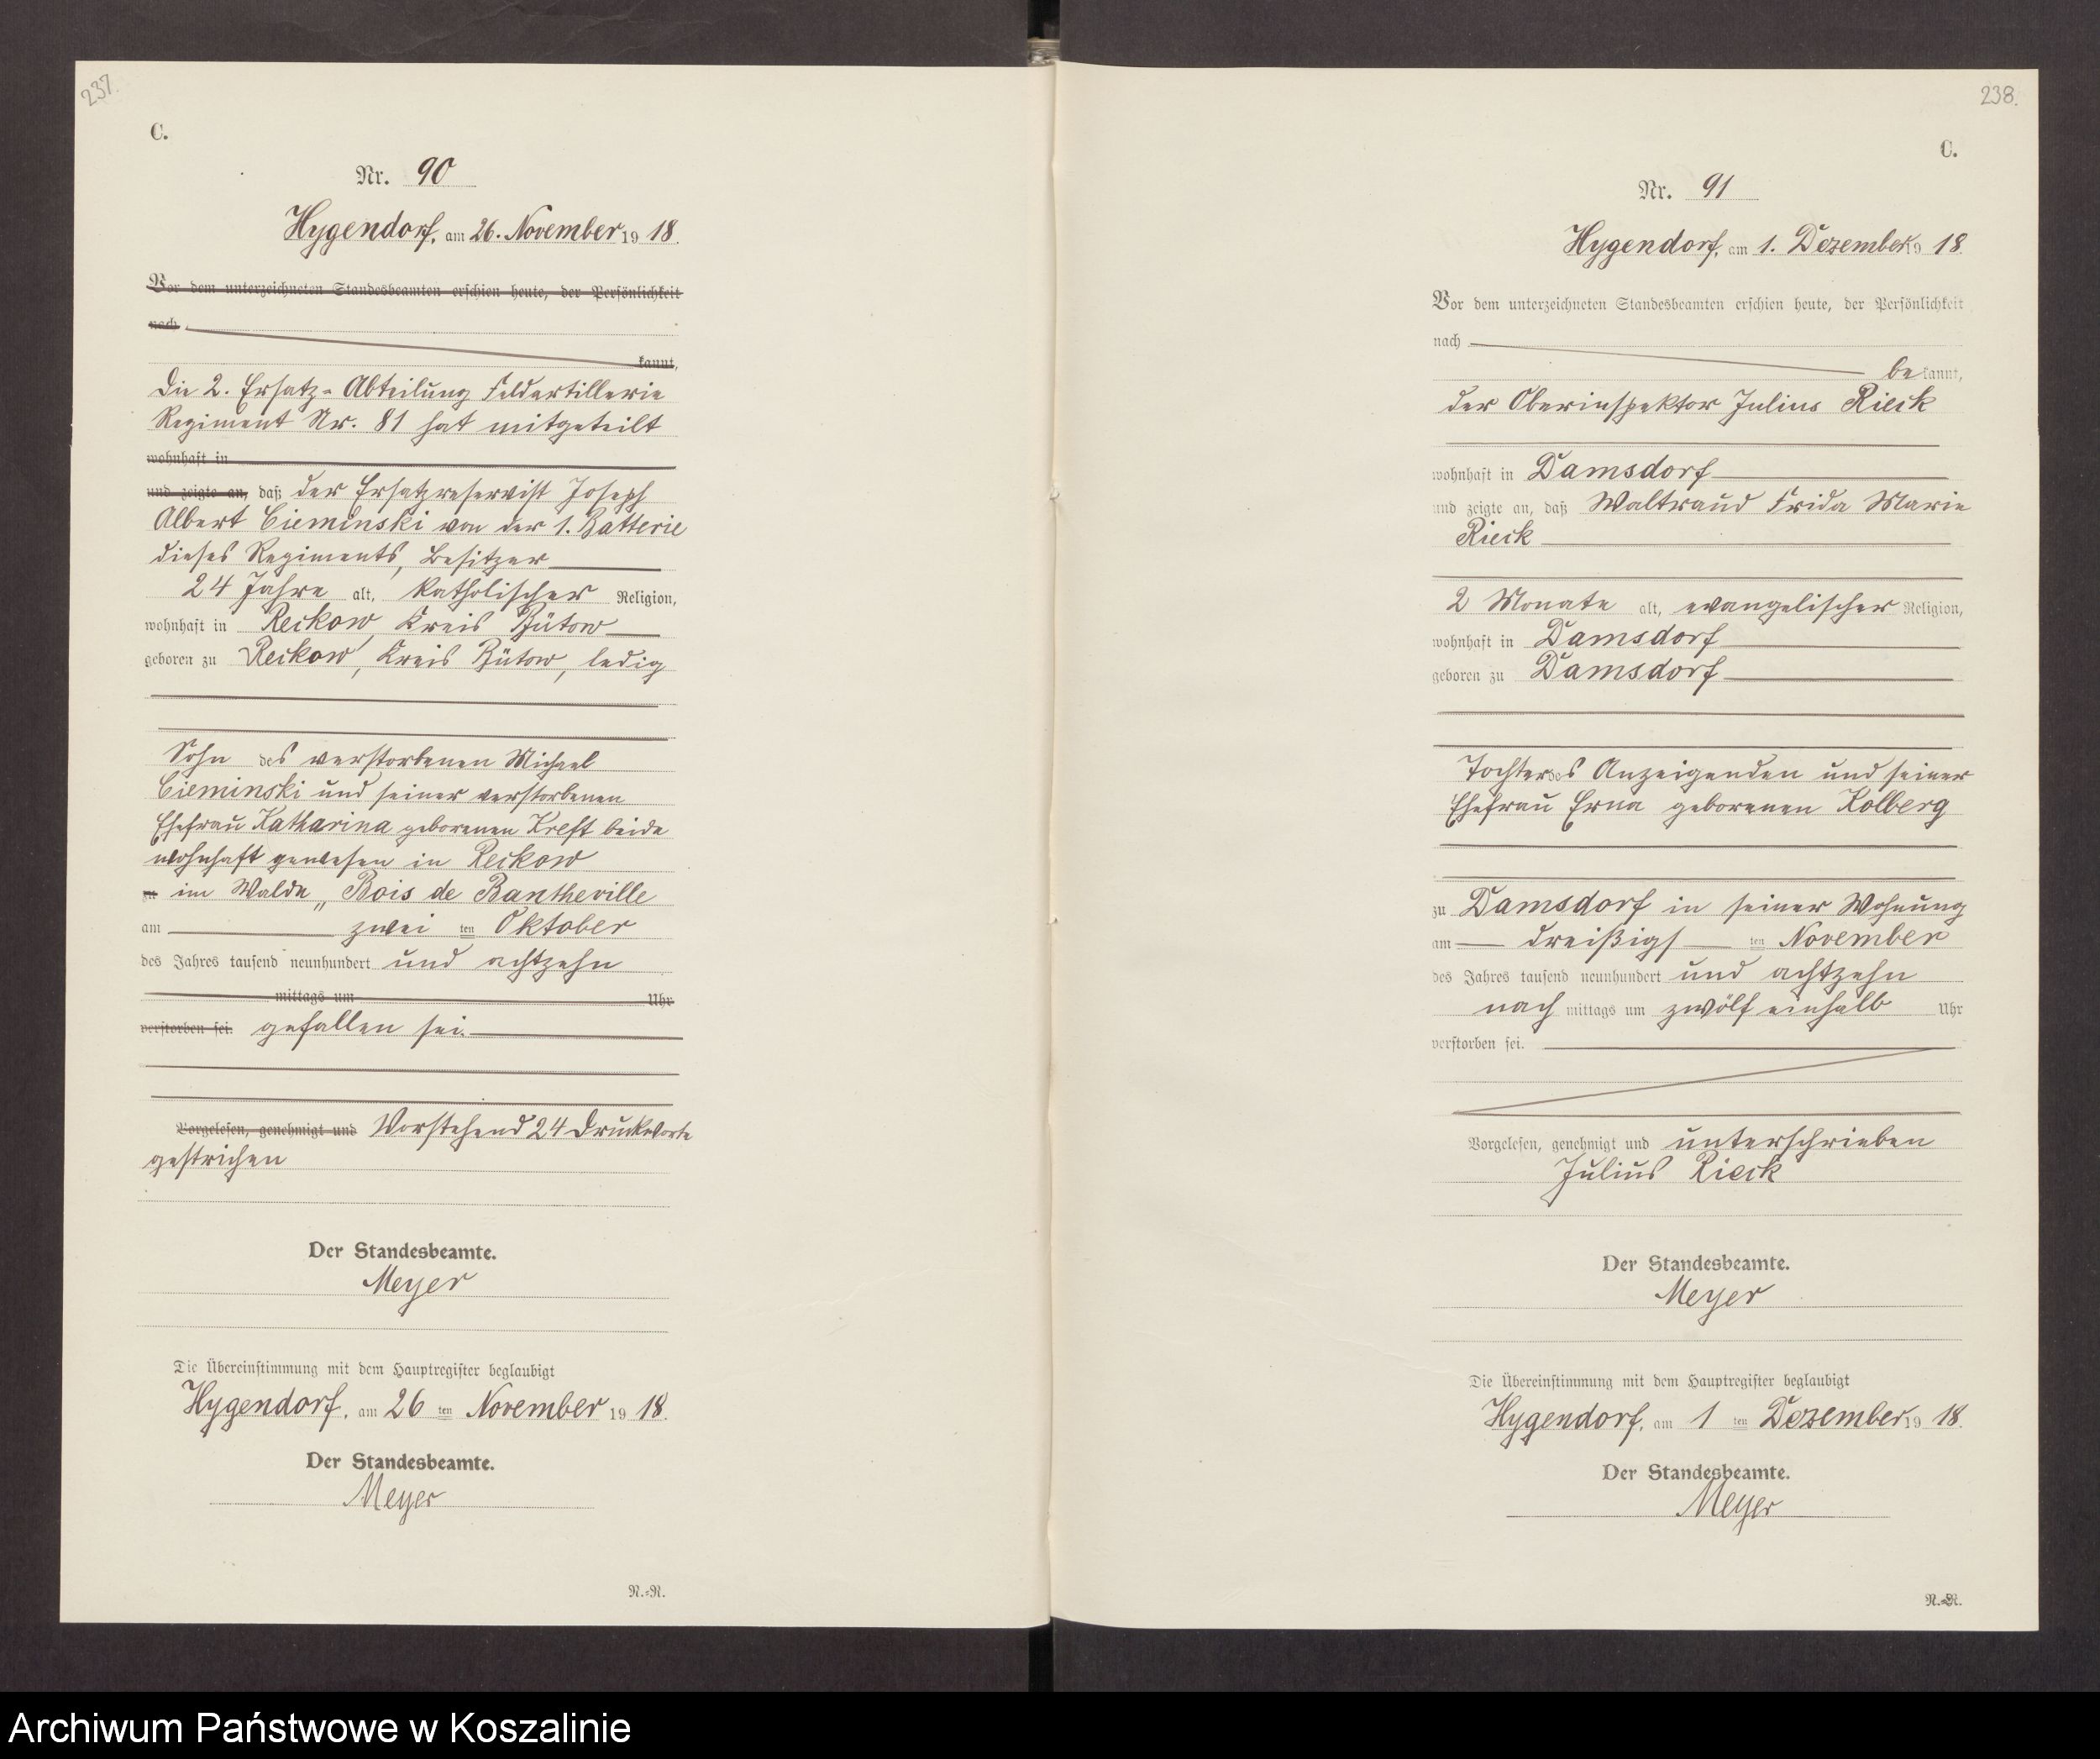 237.
C.
Nr. 90
Hygendorf, am 26. November 1918.
Vor dem unterzeichneten Standesbeamten erschien heute, der Persönlichkeit
nach
kannt,
Die 2. Ersatz-Abteilung Feldartillerie
Regiment Nr. 81 hat mitgeteilt
wohnhaft in
und zeigte an, daß der Ersatzreservist Joseph
Albert Cieminski von der 1. Batterie
dieses Regiments, Besitzer
24 Jahre alt, katholischer Religion,
wohnhaft in Reckow Kreis Bütow
geboren zu Reckow, Kreis Bütow, ledig
Sohn des verstorbenen Michael
Cieminski und seiner verstorbenen
Ehefrau Katharina geborenen Kreft beide
wohnhaft gewesen in Reckow
zu im Walde „Bois de Bantheville
am zwei ten Oktober
des Jahres tausend neunhundert und achtzehn
mittags um Uhr
verstorben sei. gefallen sei.
Vorgelesen, genehmigt und Vorstehend 24 Druckworte
gestrichen
Der Standesbeamte.
Meyer
Die Übereinstimmung mit dem Hauptregister beglaubigt
Hygendorf, am 26 ten November 1918.
Der Standesbeamte.
Meyer
N.=R.
238.
C.
Nr. 91
Hygendorf, am 1. Dezember 1918.
Vor dem unterzeichneten Standesbeamten erschien heute, der Persönlichkeit
nach
bekannt,
der Oberinspektor Julius Rieck
wohnhaft in Damsdorf
und zeigte an, daß Waltraud Frida Marie
Rieck
2 Monate alt, evangelischer Religion,
wohnhaft in Damsdorf
geboren zu Damsdorf
Tochter des Anzeigenden und seiner
Ehefrau Erna geborenen Kolberg
zu Damsdorf in seiner Wohnung
am dreißigs ten November
des Jahres tausend neunhundert und achtzehn
nach mittags um zwölf einhalb Uhr
verstorben sei.
Vorgelesen, genehmigt und unterschrieben
Julius Rieck
Der Standesbeamte.
Meyer
Die Übereinstimmung mit dem Hauptregister beglaubigt
Hygendorf, am 1 ten Dezember 1918.
Der Standesbeamte.
Meyer
N.=R.
Archiwum Państwowe w Koszalinie